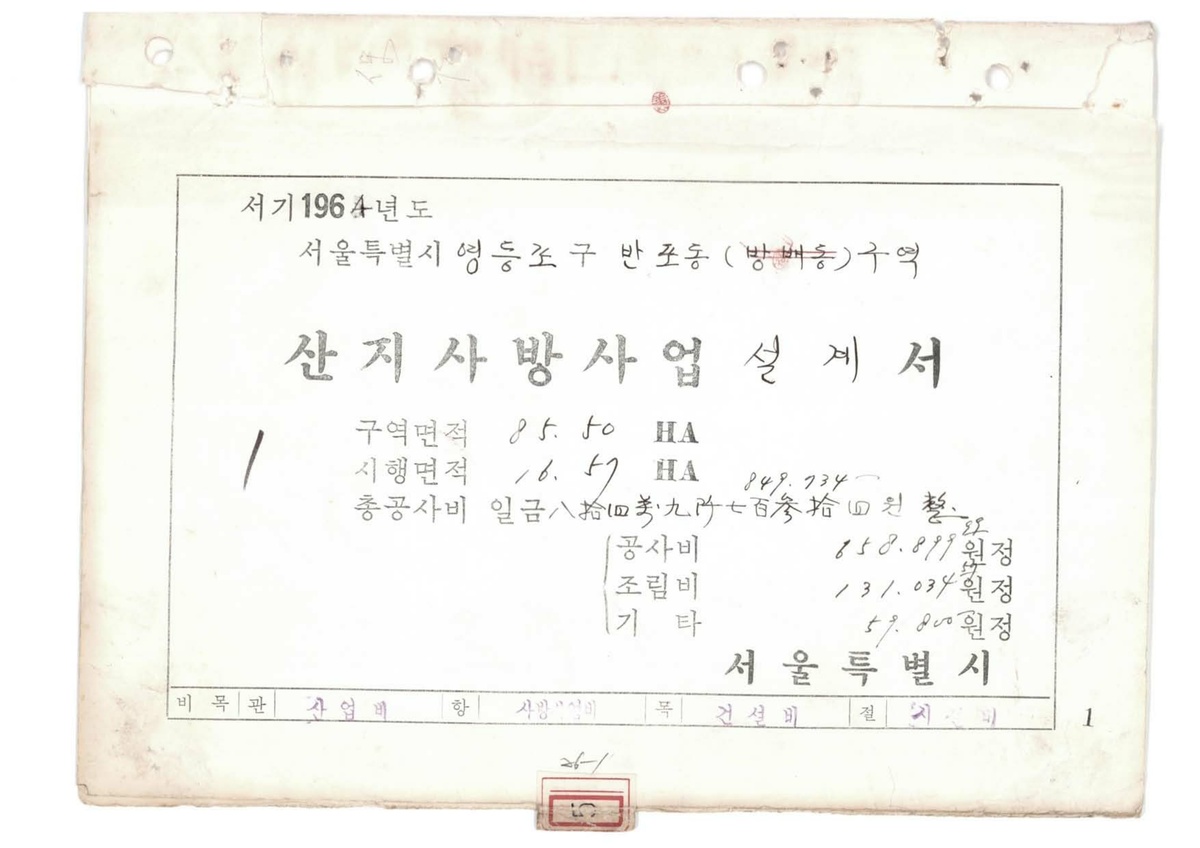 서기 1964년도
서울특별시 영등포구 반포동 (방배동) 구역
산지사방사업 설계서
구역면적 85.50 HA
시행면적 16.57 HA
849.734
총공사비 일금八拾四萬九阡七百參拾四원 整
공사비 658.899 원정
조림비 131.034 원정
기 타 59.800 원정
서울특별시
비목 관 산업비 항 사방사업비 목 건설비 절
1
5